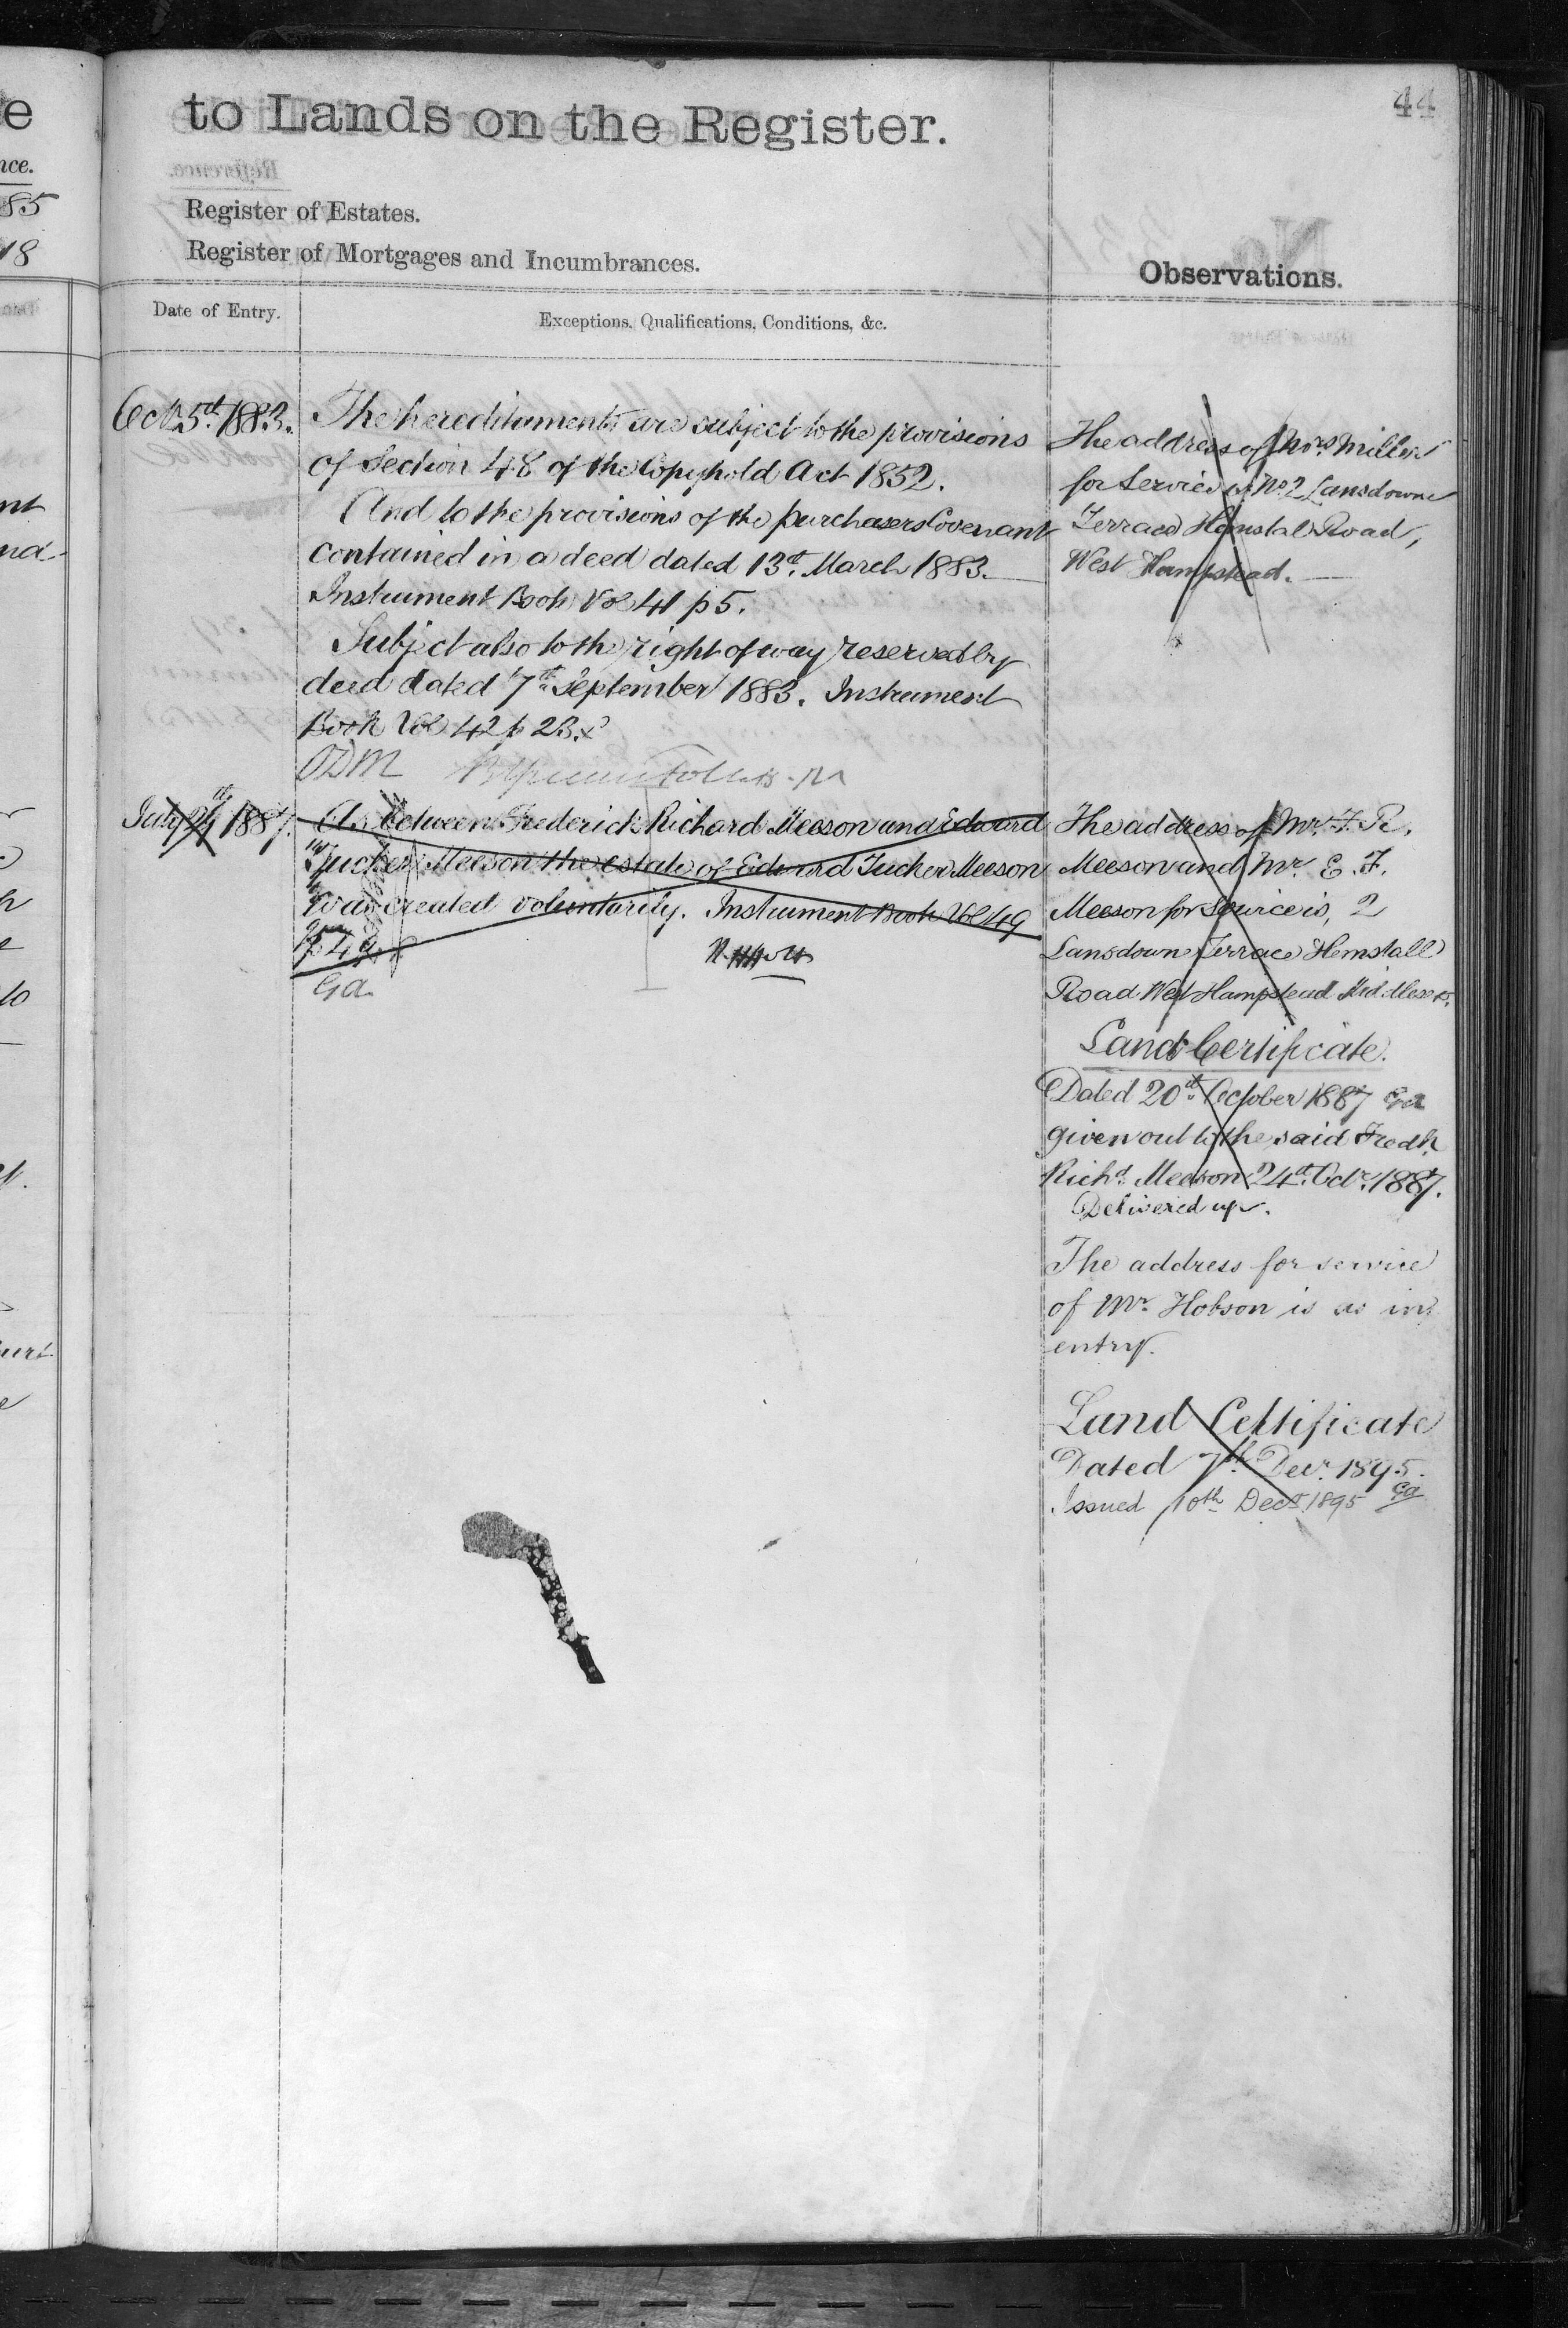 to Lands on the Register.
44
Register of Estates.
Register of Mortgages and Incumbrances.
Observations.
Date of Entry.
Exceptions, Qualifications, Conditions, &c.
Oct 5th 1883.
The hereditaments are subject to the provisions
of Section 48 of the Copyhold Act 1852.
And to the provisions of the purchasers Covenant
contained in a deed dated 13th. March 1883.
Instrument Book Vol 41 p 5.
Subject also to the right of way reserved by
deed dated 7th September 1883. Instrument
Book Vol 42 p 23.
ODM
July 1887.
As between Frederick Richard Meeson and Edward
Tucker Meeson the estate of Edward Tucker Meeson
was created voluntarily. Instrument Book Vol 49
p 49
Ga
The address of Mrs Miller
for Service is No 2 Lansdowne
Terrace Hemstal Road,
West Hampstead.
The address of Mr F. R.
Meeson and Mr. E. T.
Meeson for service is, 2
Lansdown Terrace Hemstall
Road West Hampstead Middlesex.
Land Certificate.
Dated 20th October 1887 Ga
given out to the said Fredk
Richd Meeson 24th Octr. 1887.
Delivered up.
The address for service
of Mr. Hobson is as in
entry.
Land Certificate
Dated 7th Decr 1895.
Issued 10th Decr 1895 Ga
e
nce.
85
18
nt
to